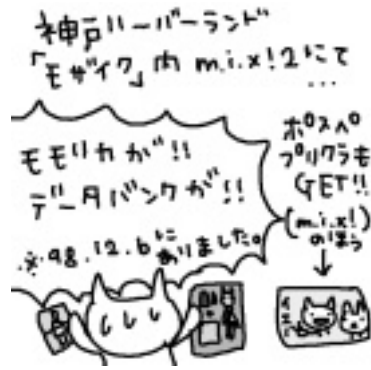 神戸ハーバーランド
「モザイク」内 m.i.x!2にて
…
モモリカが!!
データバンクが!!
※98.12.6に
ありました。
ポスペ
プリクラも
GET!!
(m.i.x!
のほう)
↓